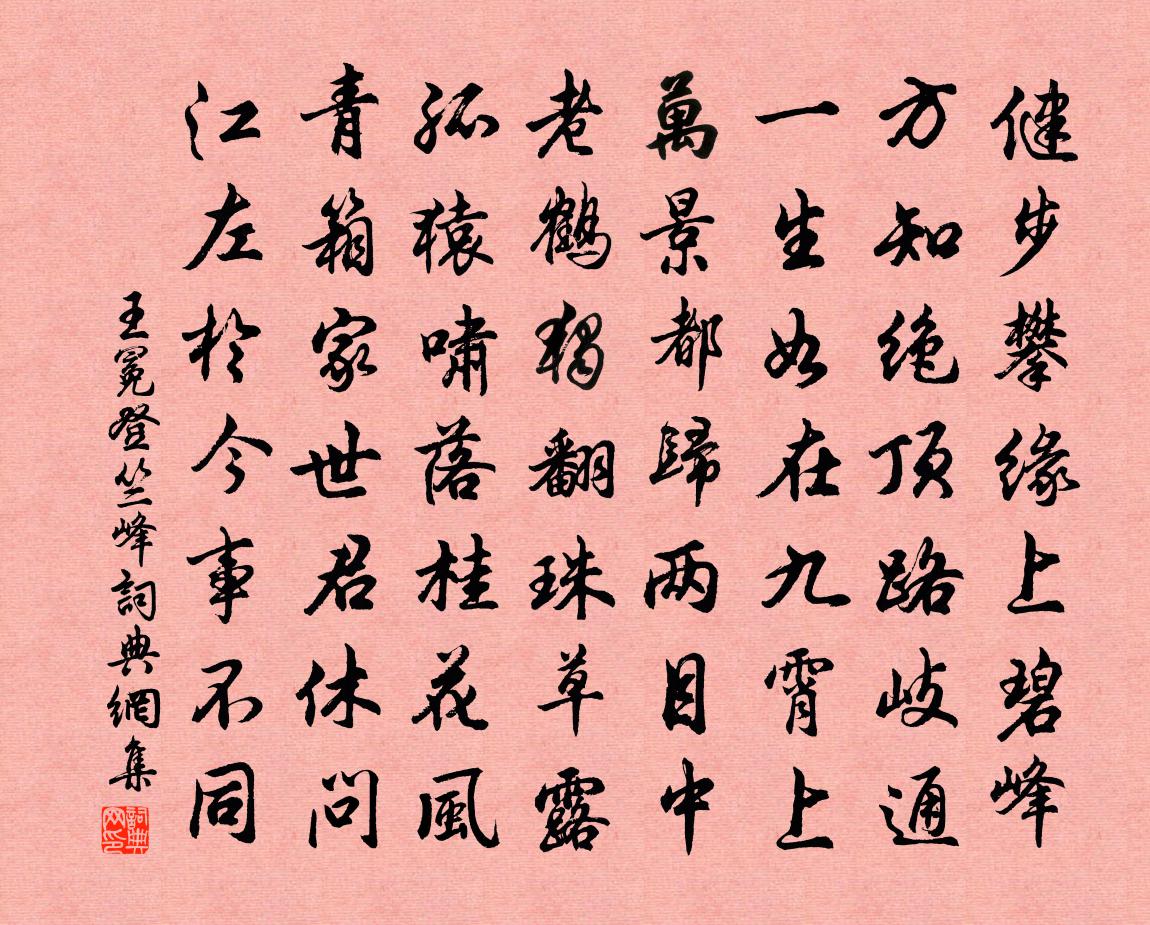 健步攀缘上碧峰
方知绝顶路岐通
一生如在九霄上
萬景都歸两目中
老鹤独翻珠草露
孤猿啸落桂花風
青箱家世君休问
江左於今事不同
王冕登竺峰詞典網集
詞典网印